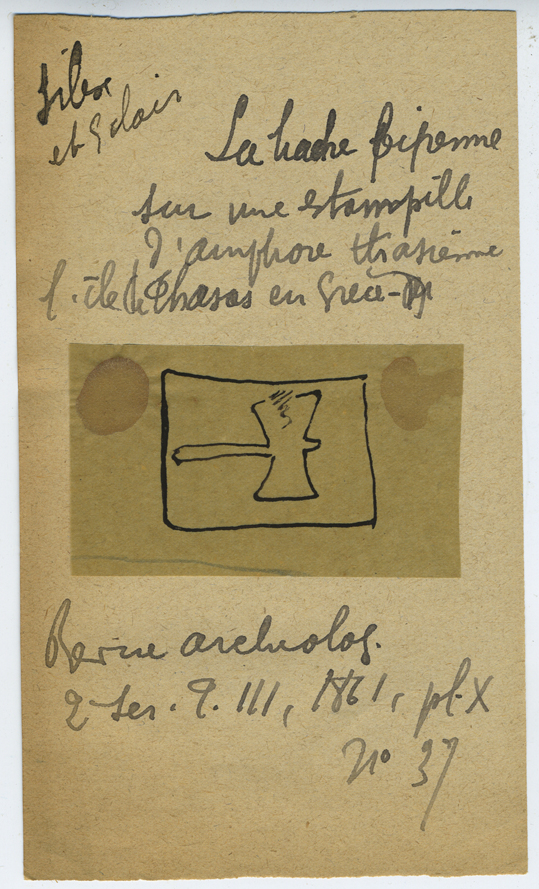 Silex
et Eclair
La hache bipenne
sur une estampille
d'amphore thasienne
l'île de Thasos en Grèce
Revue archeolog.
2 Ser. T. III, 1861, pl. X
No 37